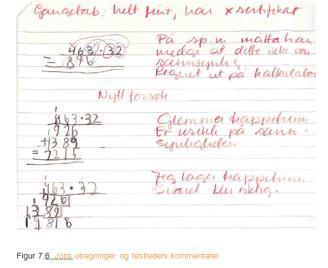 Gangetab: helt fint, har x sertifikat
463 · 32
= 896
På sp.m måtte han
medgi at dette ikke var
sannsynlig.
Regnet ut på kalkulator
Nytt forsøk
463 · 32
926
+1389
= 2315
Glemmer trappetrinn
Er usikker på sann-
synligheten
463 · 32
926
1389
Jeg lager trappetrinn
Svaret blir riktig.
Figur 7.6 Jons utregninger og testleders kommentarer